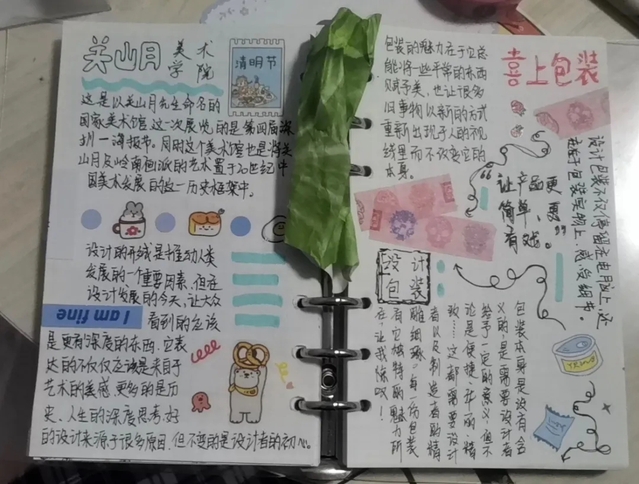 关山月美术
学院
清明节
这是以关山月先生命名的
国家美术馆.这一次展览的是第四届深
圳—海报节.同时这个美术馆也是将关
山月及岭南画派的艺术置于20世纪中
国美术发展的这一历史框架中.
设计的开端是推动人类
发展的一个重要因素,但在
设计发展的今天,让大众
I am fine
看到的应该
是更有深度的东西.它表
达的不仅仅应该是来自于
艺术的美感,更多的是历
史、人生的深度思考.好
的设计来源于很多原因,但不变的是设计者的初心.
喜上包装
包装的魅力在于它总
能将一些平常的东西
赋予美,也让很多
旧事物以新的方式
重新出现于人的视
线里而不改变它的
本真.
“让产品更
简单、更
有效.”
设计包装不仅停留在电脑上,还
在于包装实物上,感受细节.
设计
包装
包装本身是没有含
义的,是需要设计者
给予一定的意义.值不
论是便捷、花一的、精
致……这都需要设计
者以及制造者的精
雕细琢.每一份包装
有它独特的魅力所
在,让我惊叹!